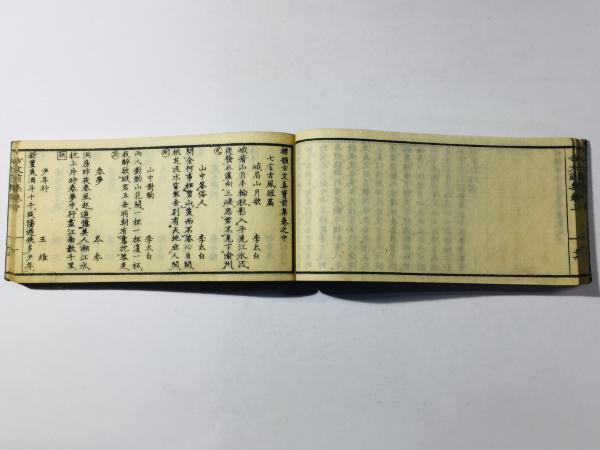 韻古文真宝前集巻之中
七言古風短篇
峨眉山月歌 李太白
峨眉山月半輪秋影入平羌江水流
夜發清溪向三峡思君不見下渝州
山中答俗人 李太白
問余何事栖碧山笑而不答心自閑
桃花流水窅然去別有天地非人間
山中對酌 李太白
兩人對酌山花開一杯一杯復一杯
我醉欲眠君且去明朝有意抱琴来
春夢 岑參
洞房昨夜春風起遥憶美人湘江水
枕上片時春夢中行盡江南数千里
少年行 王維
新豊美酒斗十千咸陽遊侠多少年